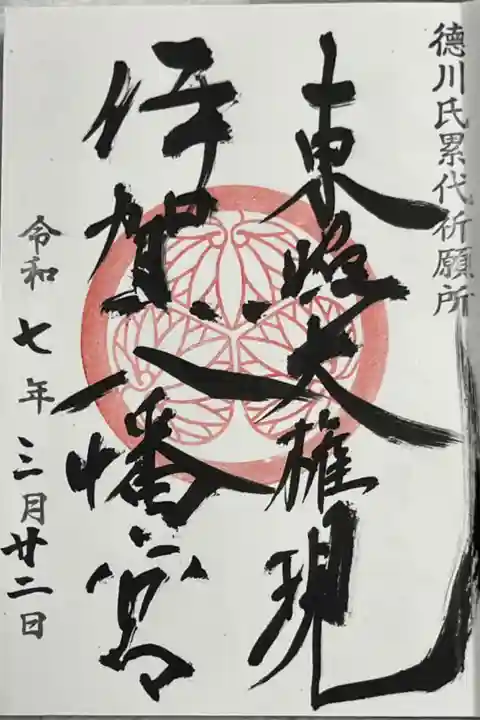 徳川氏累代祈願所
東照大権現
伊賀八幡宮
令和七年三月廿二日